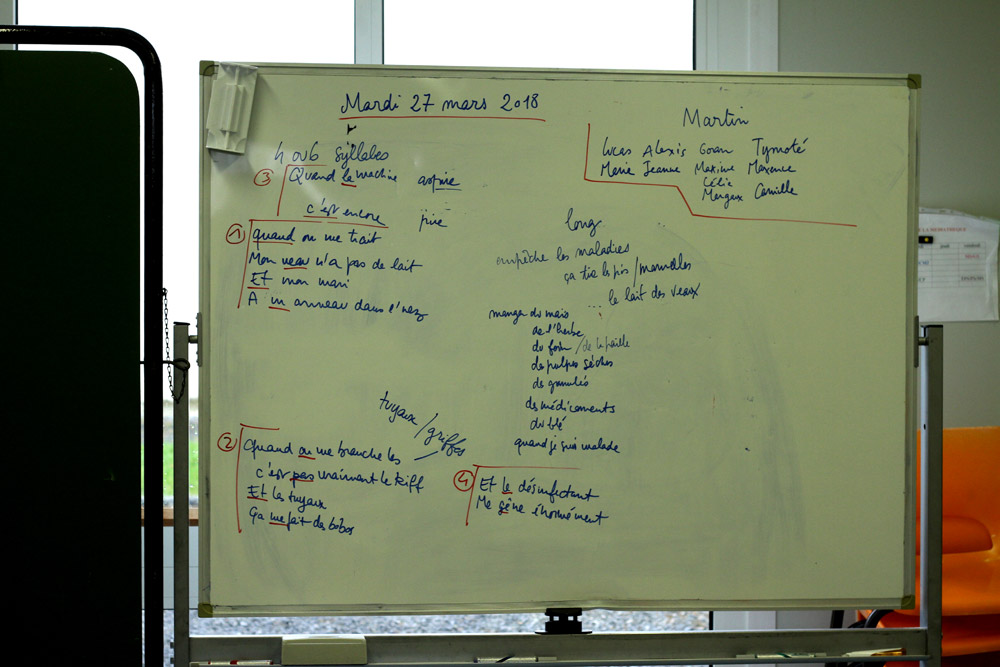 Mardi 27 mars 2018
4 ou 6 syllabes
③ Quand la machine aspire
c'est encore pire
① quand on me trait
Mon veau n'a pas de lait
Et mon mari
A un anneau dans l'nez
② Quand on me branche les tuyaux / griffes
c'est pas vraiment le kiff
Et les tuyaux
Ça me fait des bobos
Martin
Lucas Alexis Goran Tymoté
Marie Jeanne Maxime Maxence
Célia
Margaux Camille
long
empêche les maladies
ça tire le pis / mamelles
le lait des veaux
manger du maïs ...
de l'herbe
du foin / de la paille
des pulpes sèches
des granulés
des médicaments
du blé
quand je suis malade
④ Et le désinfectant
Me gêne énormément